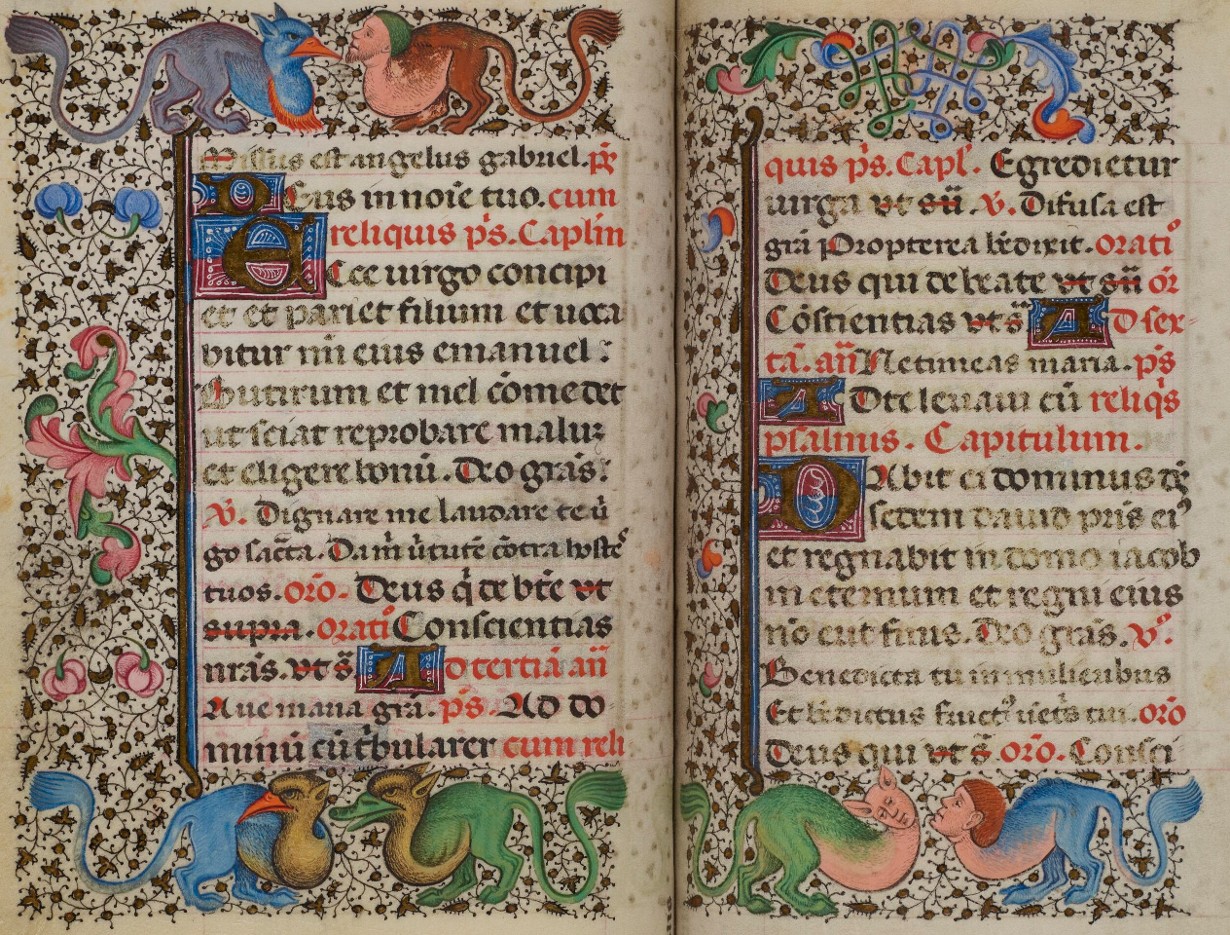 Missus est angelus gabriel. ps̄
Deus in noīe tuo. cum
reliquis p̄s. Caplīn
Ecce uirgo concipi
et et pariet filium et uoca
bitur nm̄ eius emanuel :
Butirum et mel cōmedet
ut sciat reprobare malū
et eligere bonū. Deo grās.
V̄. Dignare me laudare te ū
go sac̄ta. Da m̄ ūtutē cōtra hoste᷒
tuos. or̄o. Deus q̄ de bt̄e ut
supra. orati᷒ Conscientias
nrās. ut s̄ Ad tertiā an̄
Aue maria grā. p̄s. Ad do
minū cū t̄bularer cum reli
quis p̄s. Capl̄. Egredietur
uirga ut sū. V̄. Difusa est
grā Propterea bēdixit. orati᷒
Deus qui de beate ut sū or̄
Cōscientias ut s̄ Ad sex-
tā. an̄ Ne timeas maria. p̄s
Ad te leuaui cū reliq̄s
psalmis. Capitulum.
Dabit ei dominus dē
sedem dauid pris ei᷒
et regnabit in domo iacob
in eternum et regni eius
nō erit finis. Deo grās. V̄.
Benedicta tu in mulieribus
Et bēdictus fruct᷒ uēt̄s tui. or̄o
Deus qui ut s̄ or̄o. Consci